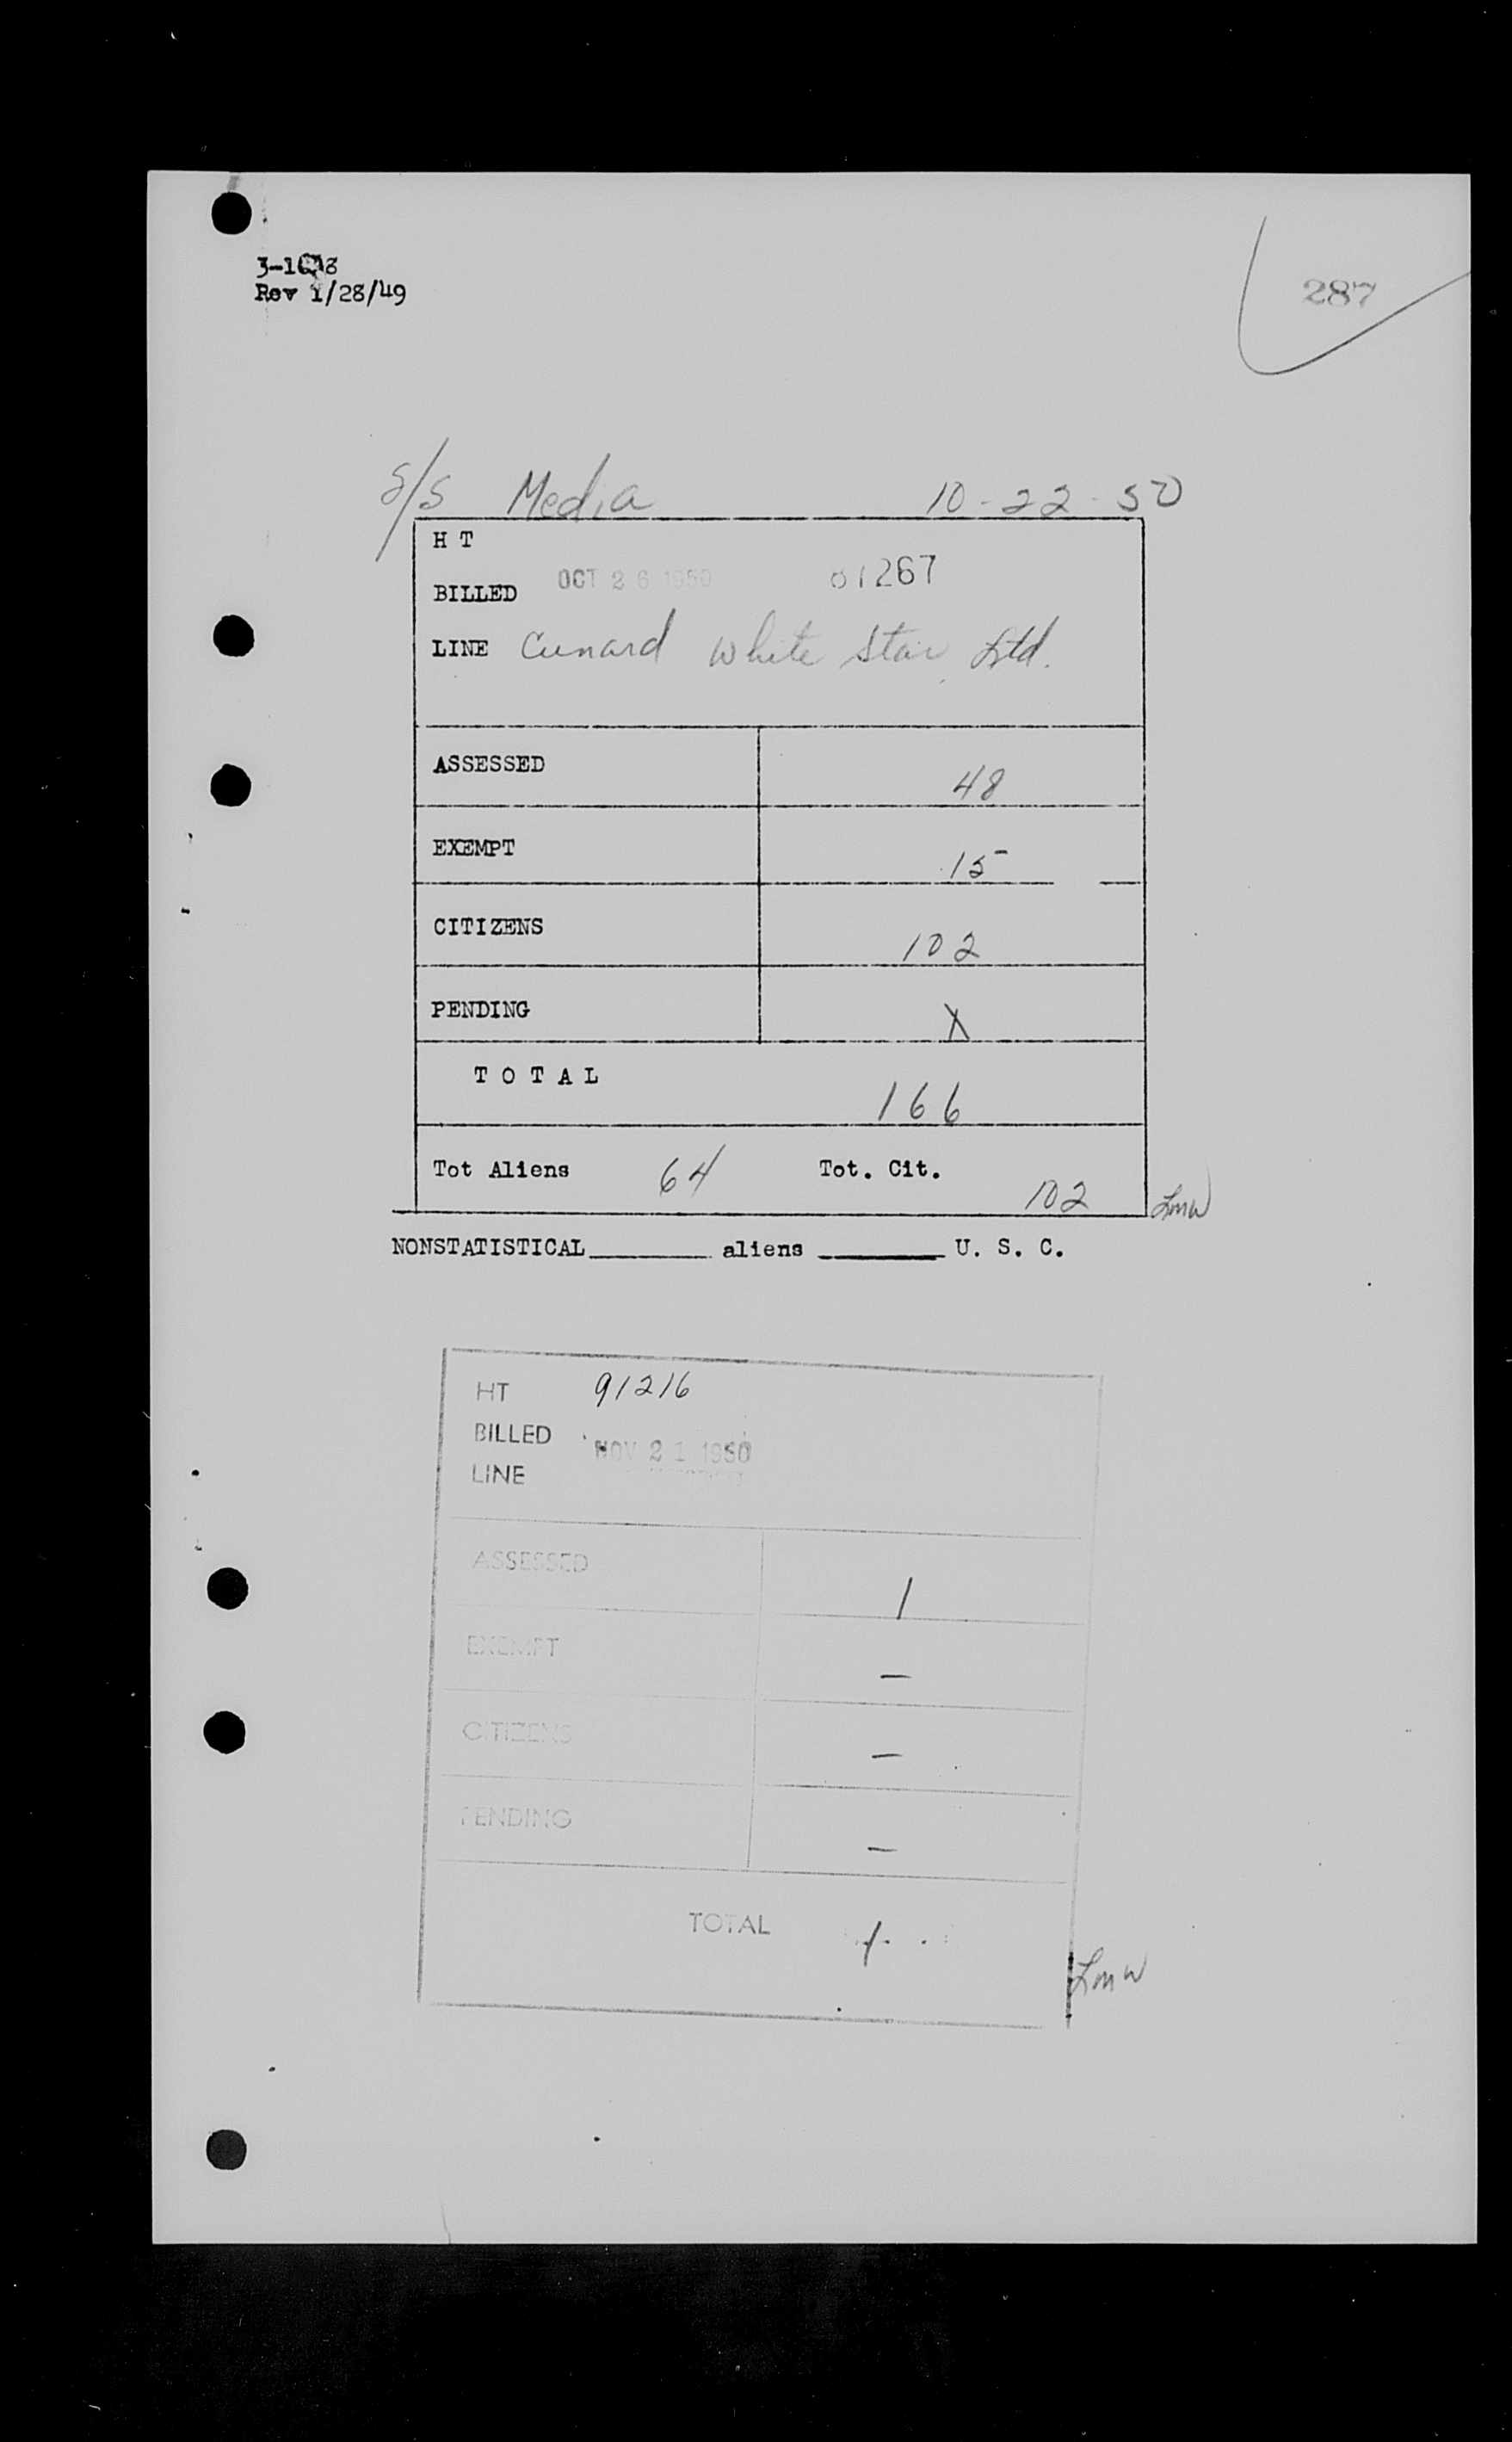 Rev 1/28/49
287
S/S Media 10-22-50
H T
BILLED OCT 26 1950 81267
LINE Cunard White Star Ltd.
ASSESSED 48
EXEMPT 15
CITIZENS 102
PENDING X
TOTAL 166
Tot Aliens 64 Tot. Cit. 102 Lmw
NONSTATISTICAL aliens U. S. C.
HT 91216
BILLED NOV 21 1950
LINE
ASSESSED 1
EXEMPT —
CITIZENS —
PENDING —
TOTAL 1
Lmw